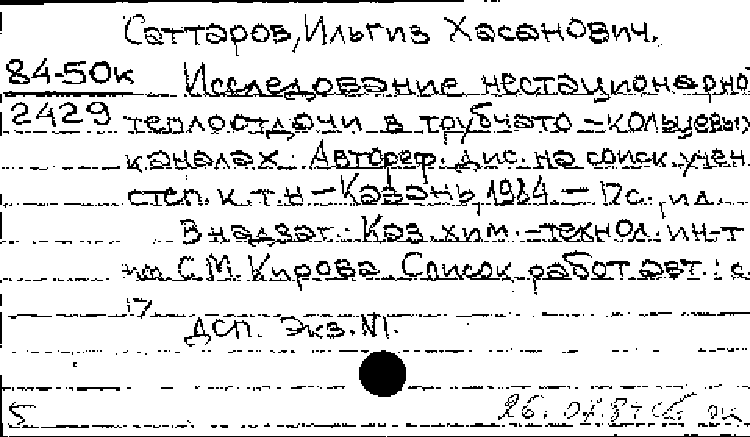 Саттаров, Ильгиз Хасанович.
84-50к Исследование нестационарно
2429 теплоотдачи в трубчато-кольцевых
каналах. Автореф. дис. на соиск. учен.
степ. к.т.н – Казань, 1984. – 17с., ил.
В надзаг.: Каз. хим.-технол. ин-т
им. С.М. Кирова. Список работ авт.: с.
17
ДСП. Экз. №1.
5